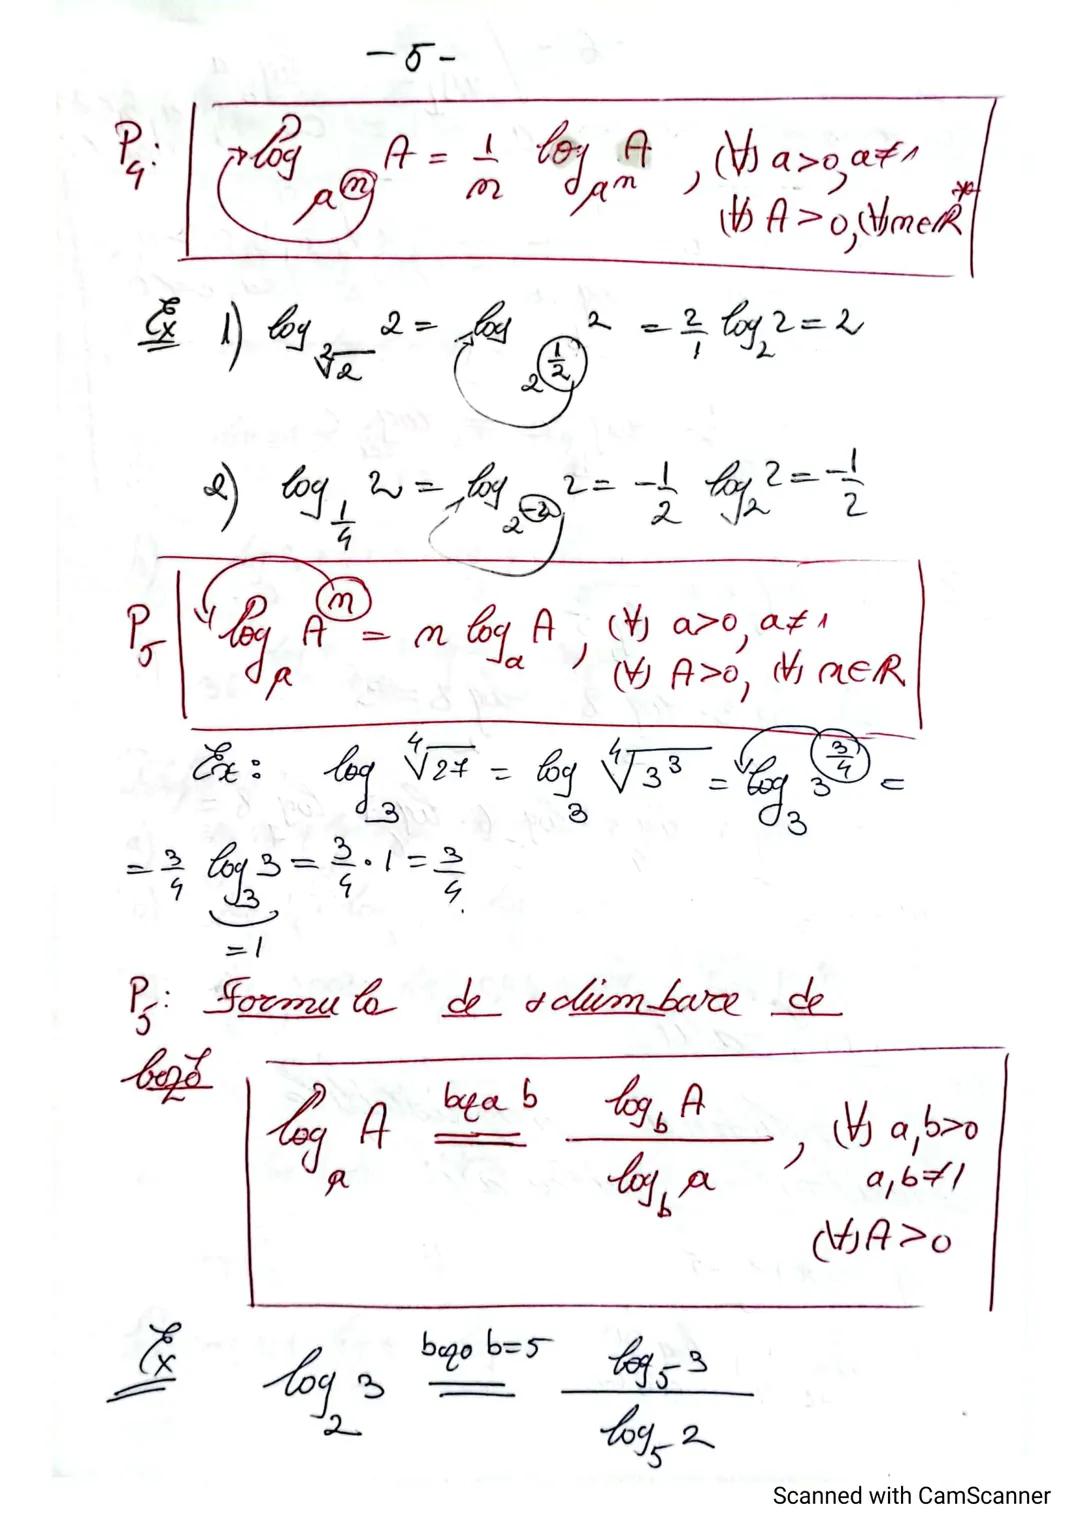 -5-
P₄: log_{aⁿ} A = 1/n log_{aⁿ} A, (∀) a>0, a≠1
(∀) A>0, (∀) n∈R*
Ex 1) log_{²√2} 2 = log_{2^{1/2}} 2 = 2/1 log₂ 2 = 2
2) log_{1/4} 2 = log_{2^{-2}} 2 = -1/2 log₂ 2 = -1/2
P₅ log_a Aⁿ = n log_a A, (∀) a>0, a≠1
(∀) A>0, (∀) n∈R
Ex: log₃ ⁴√27 = log₃ ⁴√3³ = log₃ 3^{3/4} =
= 3/4 log₃ 3 = 3/4 · 1 = 3/4.
=1
P₅: Formula de schimbare de
bază
log_a A = (baza b) log_b A / log_b a, (∀) a,b>0
a,b≠1
(∀) A>0
Ex log₂ 3 = (baza b=5) log₅ 3 / log₅ 2
Scanned with CamScanner